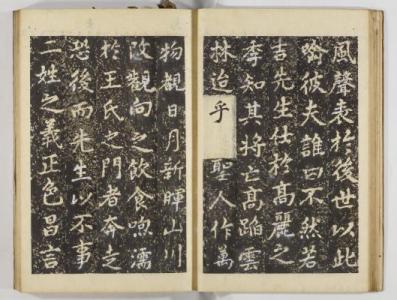 風聲表於後世以此
喻彼夫誰曰不然若
吉先生仕於高麗之
季知其將亡高蹈雲
林迨乎聖人作萬
物覩日月新暉山川
改觀向之飲食喣濡
於王氏之門者奔走
恐後而先生以不事
二姓之義正色昌言